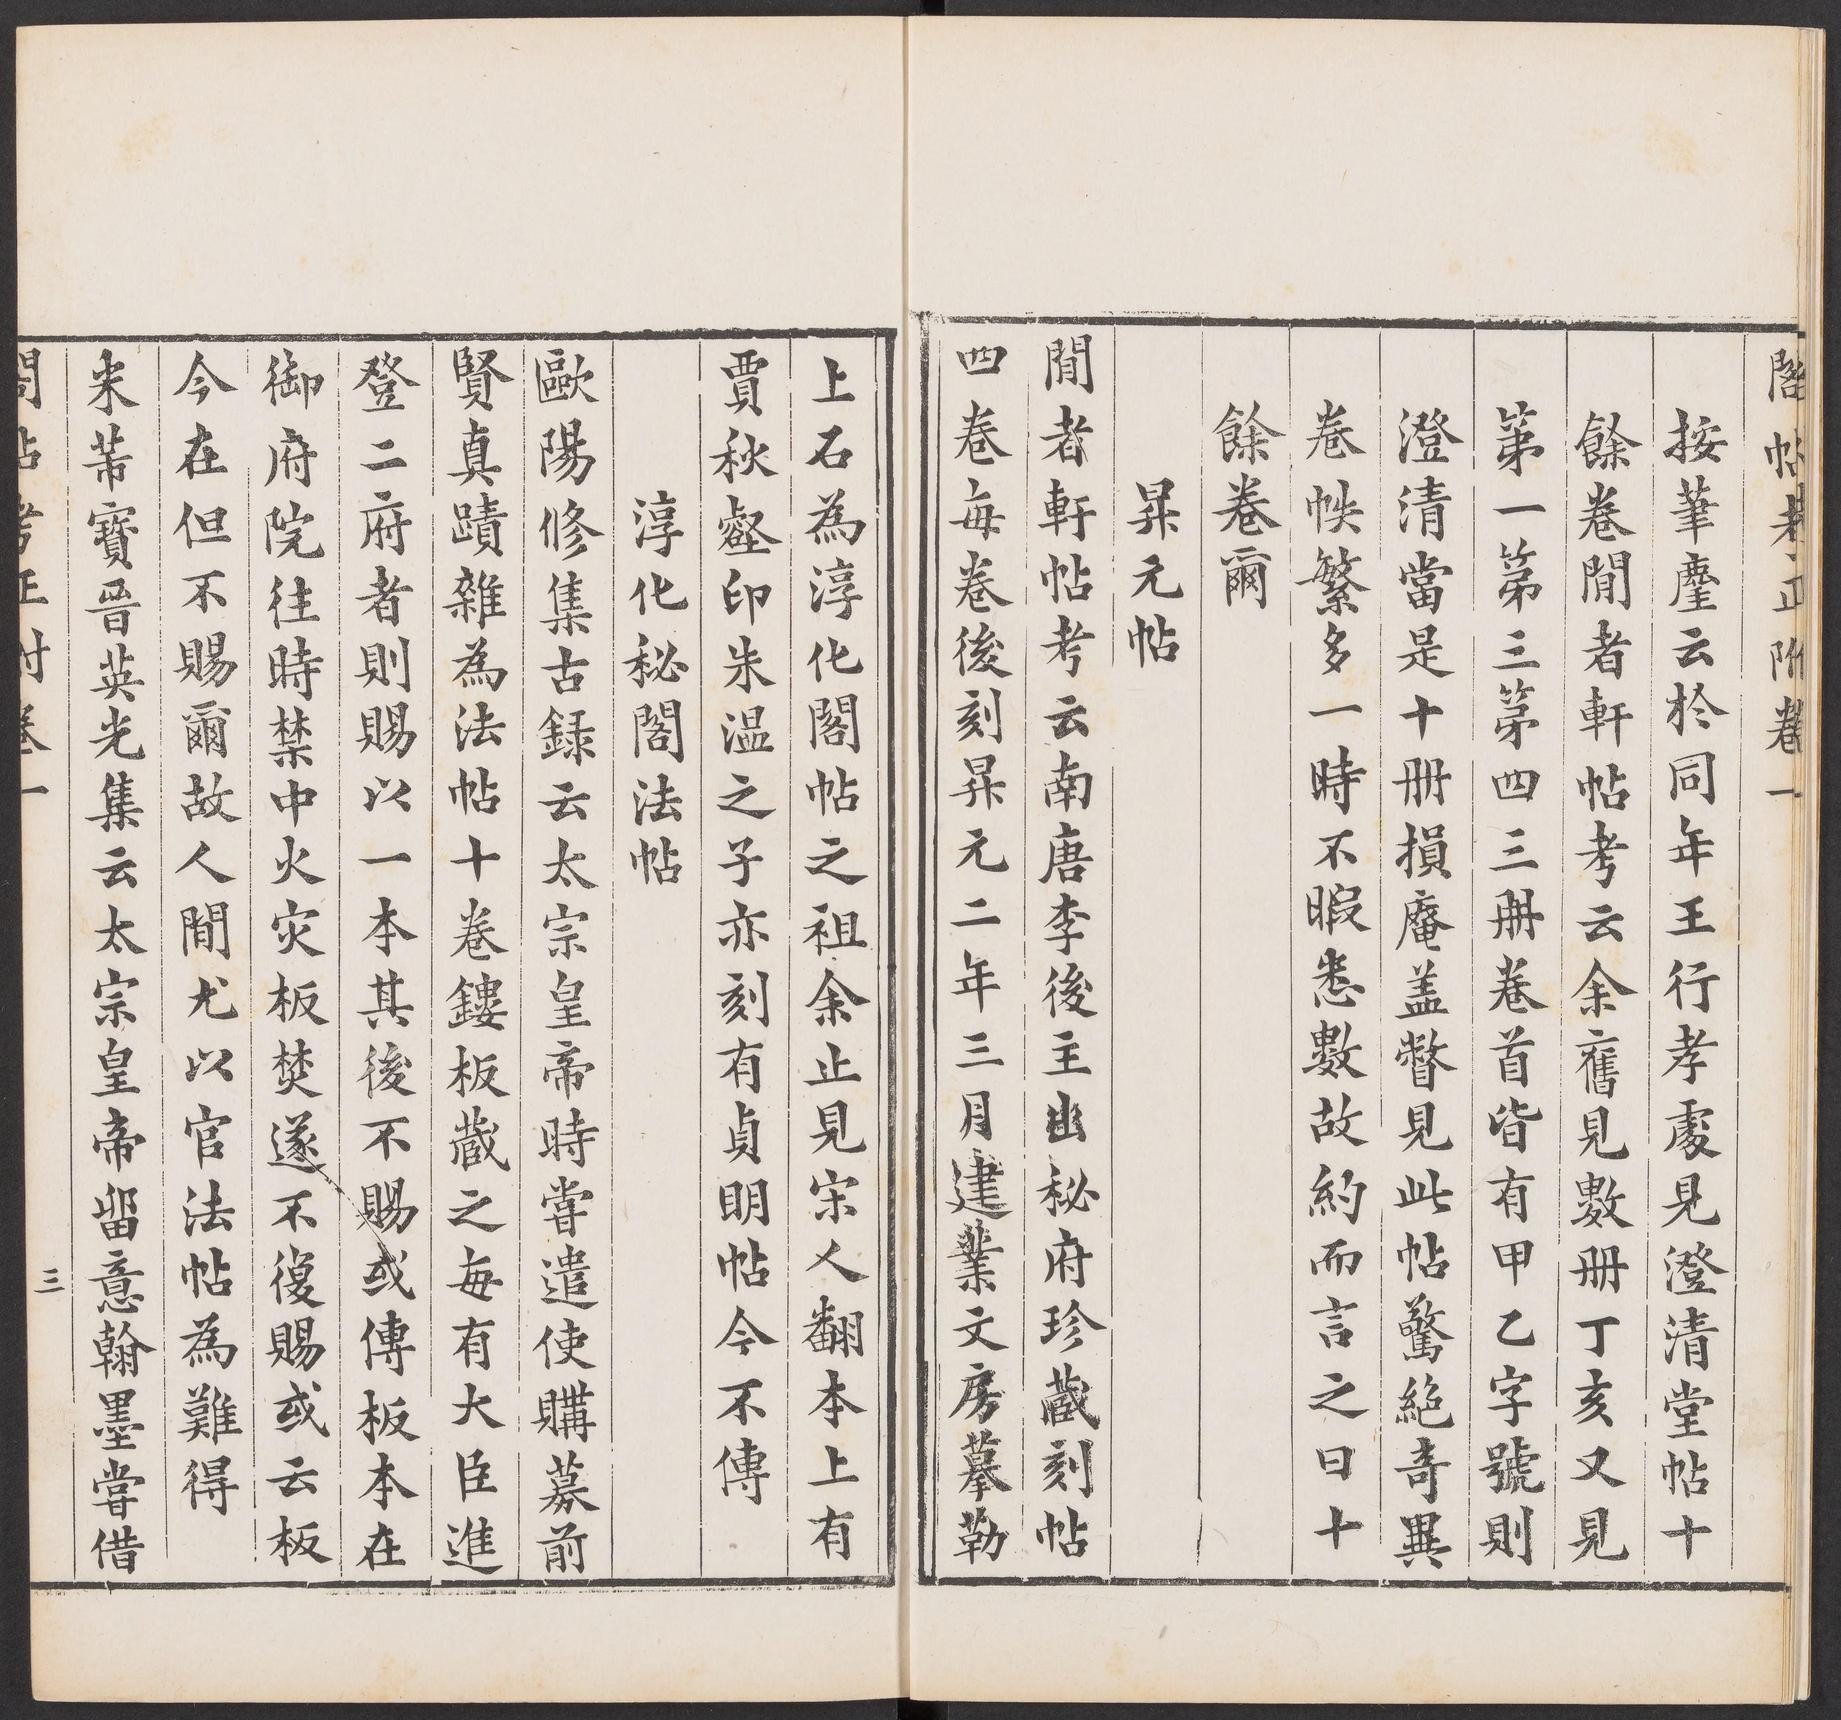 閣帖考正附卷一
按筆麈云於同年王行孝處見澄清堂帖十
餘卷閒者軒帖考云余舊見數册丁亥又見
第一第三第四三册卷首皆有甲乙字號則
澄清當是十册損庵盖瞥見此帖驚絶奇異
卷帙繁多一時不暇悉數故約而言之曰十
餘卷爾
昇元帖
閒者軒帖考云南唐李後主出秘府珍藏刻帖
四卷每卷後刻昇元二年三月建業文房摹勒
上石為淳化閣帖之祖余止見宋人翻本上有
賈秋壑印朱温之子亦刻有貞明帖今不傳
淳化秘閣法帖
歐陽修集古録云太宗皇帝時嘗遣使購募前
賢真蹟雜為法帖十卷鏤板藏之每有大臣進
登二府者則賜以一本其後不賜或傳板本在
御府院徃時禁中火灾板焚遂不復賜或云板
今在但不賜爾故人閒尤以官法帖為難得
米芾寶晉英光集云太宗皇帝留意翰墨嘗借
閣帖考正附卷一
三